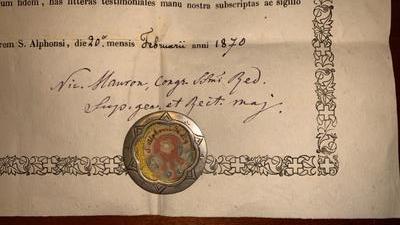 rum fidem, has litteras testimoniales manu nostra subscriptas ac sigillo
rem S. Alphonsi, die 20ª mensis Februarii anni 1870
Nic. Mauron, Congr. SSmi Red.
Sup. gen. et Rect. maj.